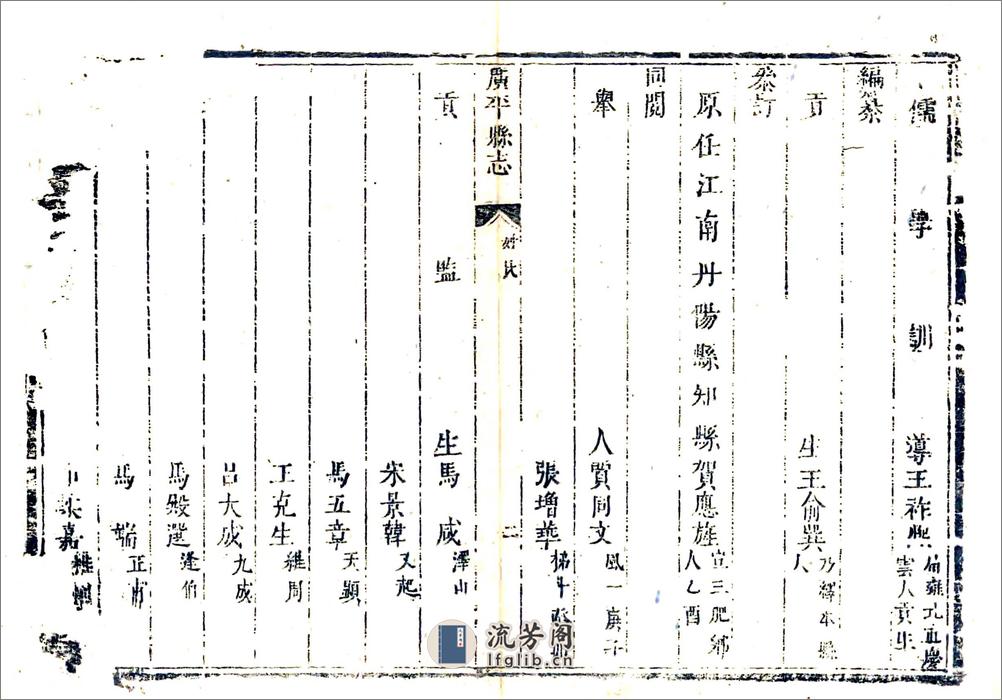 儒學訓導王祚熙
雲人貢生
編纂
貢生王俞巽 乃繹本縣人
叅訂
原任江南丹陽縣知縣賀應旌 宜三肥鄉人乙酉
同閱
舉人賈同文 風一庚子
張增華
廣平縣志 姓氏 二
貢監生馬成 澤山
宋景韓 又起
馬五章 天顯
王克生 維周
呂大成 九成
馬毅選 逢伯
馬 瑞 正甫
嘉
流芳阁
lfglib.cn